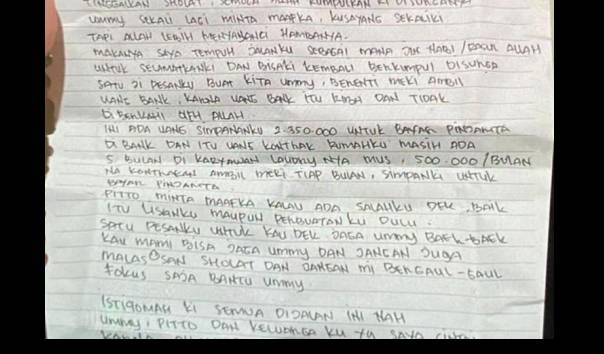 TINGGALKAN SHOLAT, SEMOGA ALLAH KUMPULKAN KI DISURGANYA
UMMY SEKALI LAGI MINTA MAAFKA, KUSAYANG SEKALIKI
TAPI ALLAH LEBIH MENYAYANGI HAMBANYA.
MAKANYA SAYA TEMPUH JALANKU SEBAGAI MANA NABI / RASUL ALLAH
UNTUK SELAMATKANKI DAN BISAKI KEMBALI BERKUMPUL DISURGA
SATU JI PESANKU BUAT KITA UMMY, BERENTI MEKI AMBIL
UANG BANK, KARNA UANG BANK ITU RIBA DAN TIDAK
DIBERKAHI OLEH ALLAH.
INI ADA UANG SIMPANANKU 2.350.000 UNTUK BAYAR PINJAMTA
DI BANK DAN ITU UANG KONTRAK RUMAHKU MASIH ADA
5 BULAN DI KARYAWAN LAUNDRY NYA MUS, 500.000/BULAN
NA KONTRAKAN AMBIL MEKI TIAP BULAN, SIMPANKI UNTUK
BAYAR PINJAMTA.
PITTO MINTA MAAFKA KALAU ADA SALAHKU DEK, BAIK
ITU LISANKU MAUPUN PERBUATANKU DULU.
SATU PESANKU UNTUK KAU DEK JAGA UMMY BAEK-BAEK
KAU MAMI BISA JAGA UMMY DAN JANGAN JUGA
MALAS SAN SHOLAT DAN JANGAN MI BERGAUL-GAUL
FOKUS SAJA BANTU UMMY.
ISTIQOMAH KI SEMUA DIJALAN INI NAH
UMMY, PITTO DAN KELUARGA KU YG SAYA CINTAI
KARENA ALLAH